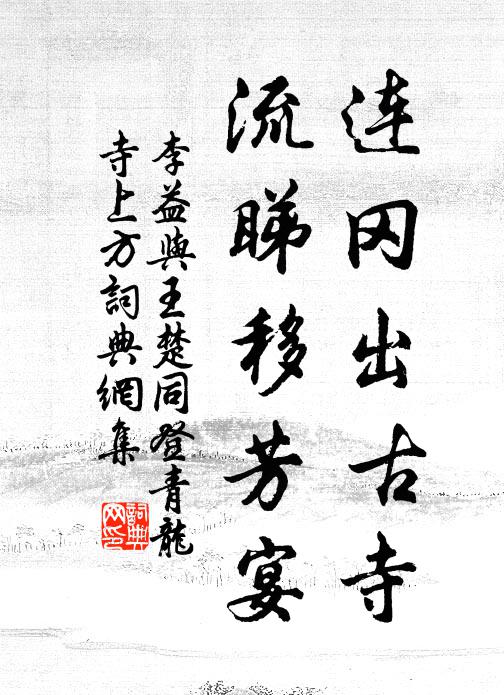 连冈出古寺
流睇移芳宴
李益與王楚同登青龍
寺上方詞典網集
詞典网印